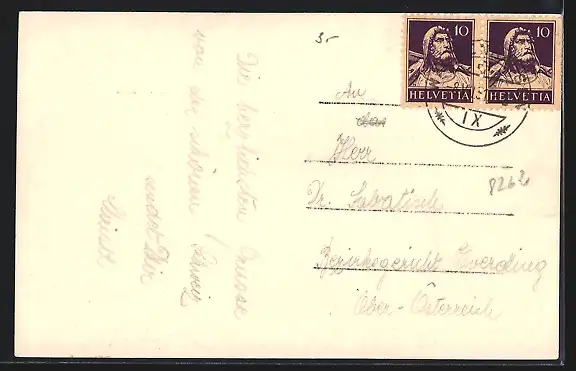 Die herzlichsten Grüsse
von der schönen Schweiz
sendet Dir
3.-
An
Herr
Dr. Sabatisch
Bezirksgericht Eferding
Ober-Österreich
8262
10
HELVETIA
10
HELVETIA
IX